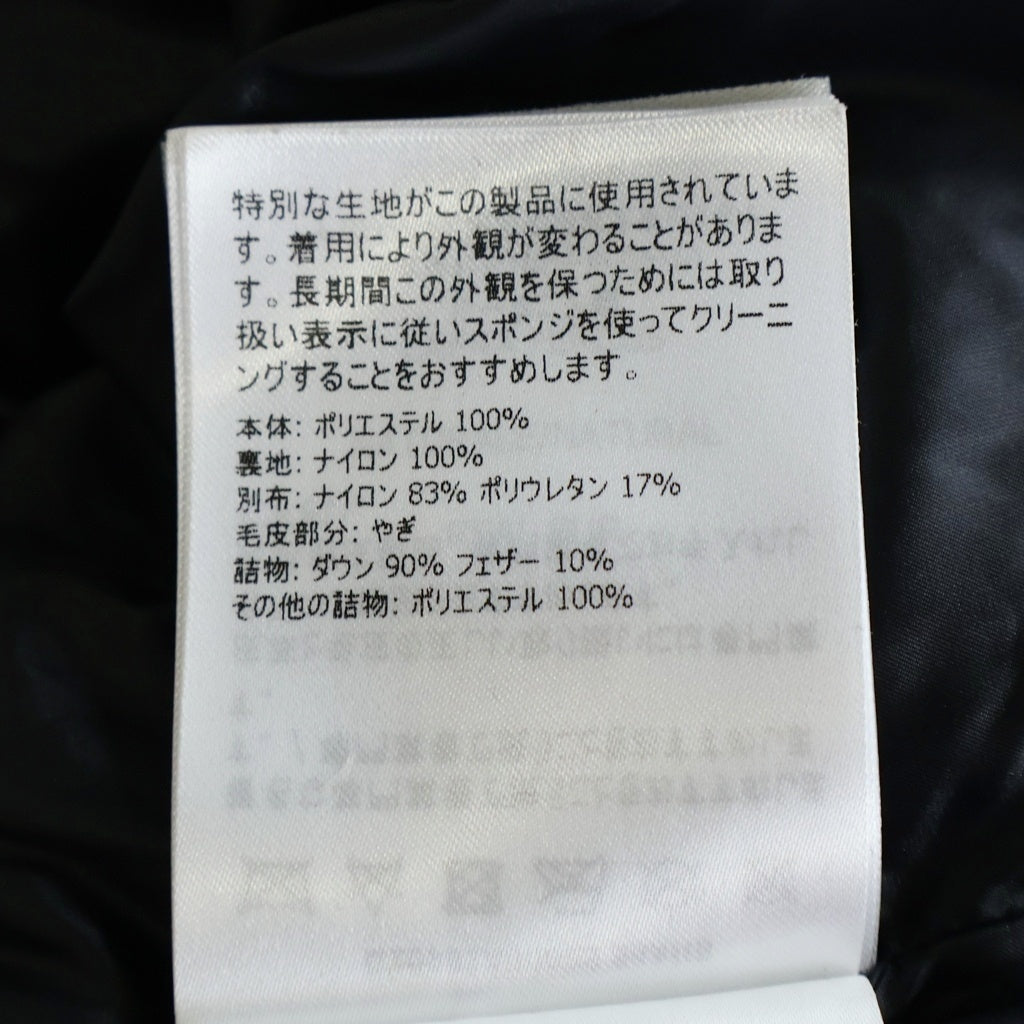 特別な生地がこの製品に使用されていま
す。着用により外観が変わることがありま
す。長期間この外観を保つためには取り
扱い表示に従いスポンジを使ってクリーニ
ングすることをおすすめします。
本体: ポリエステル 100%
裏地: ナイロン 100%
別布: ナイロン 83% ポリウレタン 17%
毛皮部分: やぎ
詰物: ダウン 90% フェザー 10%
その他の詰物: ポリエステル 100%